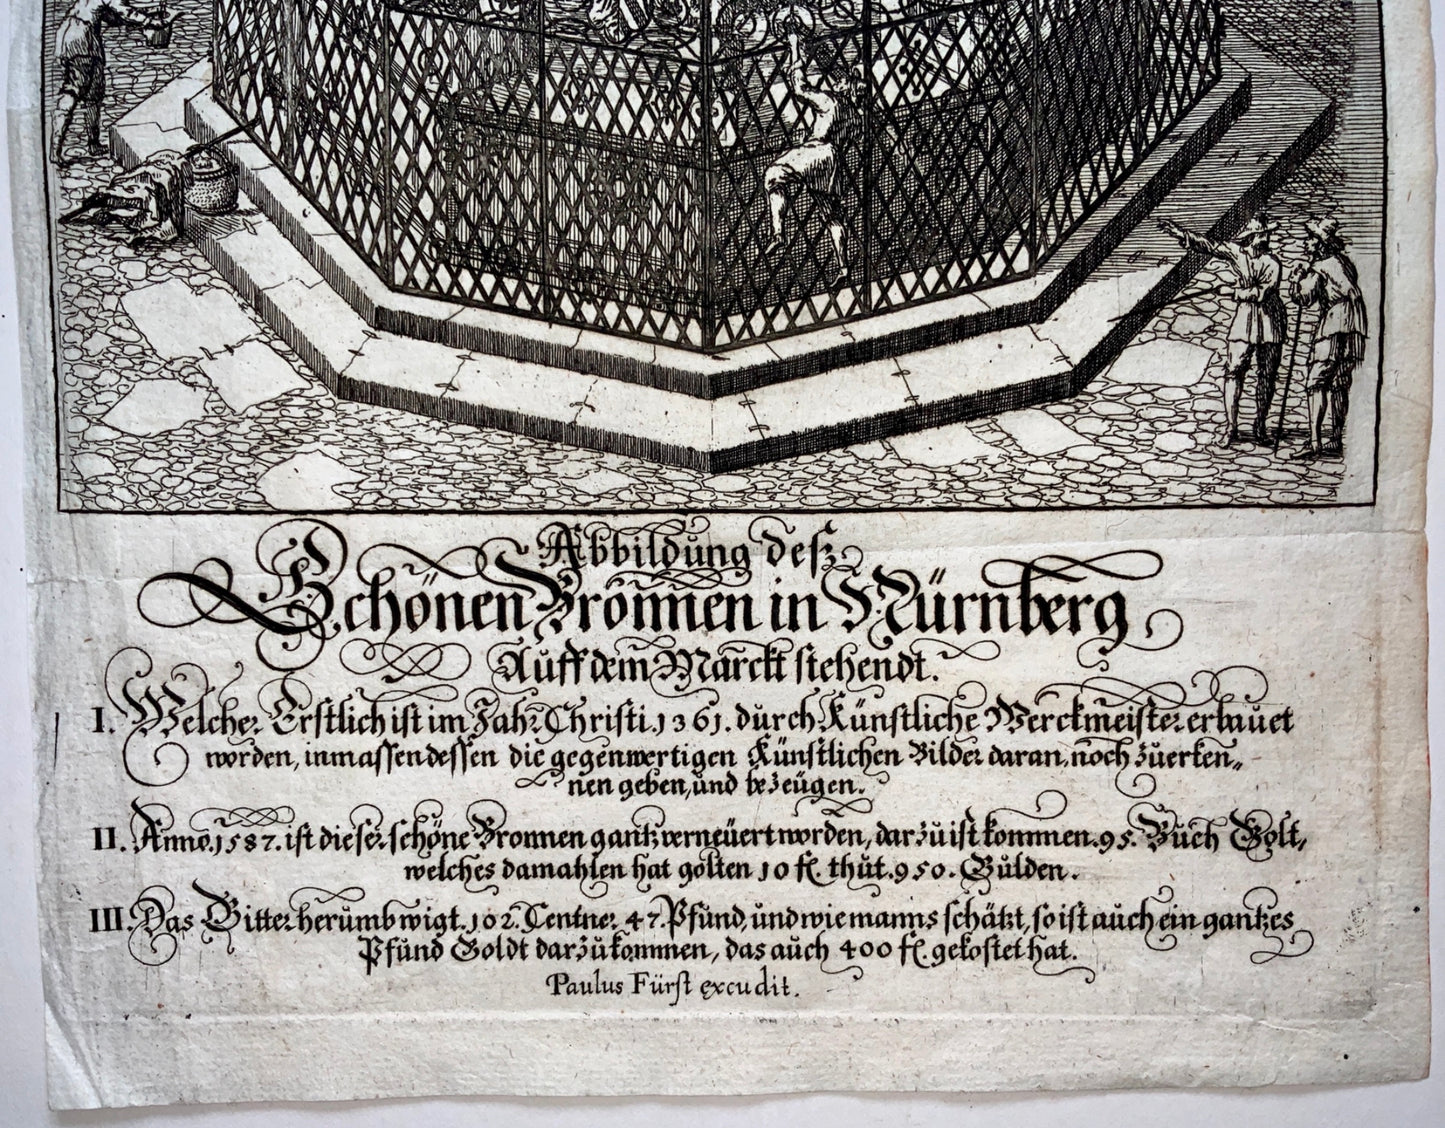 Abbildung deß
Schönen Bronnen in Nürnberg
Auff dem Marckt stehendt.
I. Welcher Erstlich ist im Jahr Christi.1361. durch Künstliche Werckmeister erbauet
worden, inmassen dessen die gegenwertigen Künstlichen Bilder daran, noch zuerken„
nen geben, und bezeügen.
II. Anno.1587. ist dieser schöne Bronnen gantz verneüert worden, darzu ist kommen.95. Buch Golt,
welches damahlen hat golten 10 fl. thut.950. Gulden.
III. Das Gitter herumb wigt.102. Centner 47. Pfund, und wie manns schätzt, so ist auch ein gantzes
Pfund Goldt darzu kommen, das auch 400 fl. gekostet hat.
Paulus Fürst excudit.